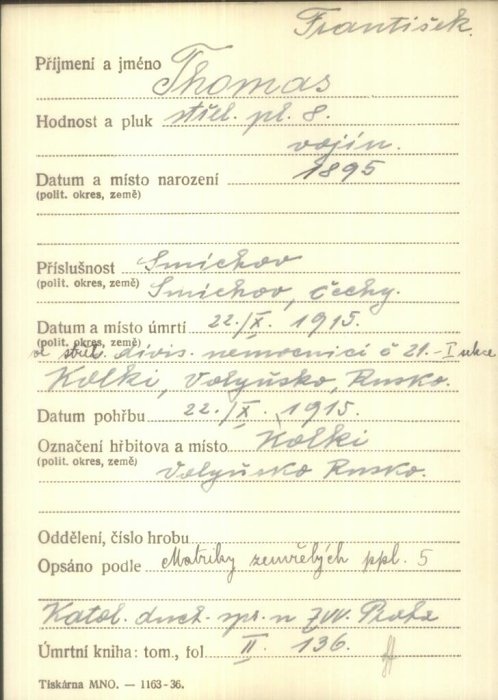 František
Příjmení a jméno Thomas
Hodnost a pluk střel. pl. 8.
vojín.
Datum a místo narození 1895
(polit. okres, země)
Příslušnost Smíchov
(polit. okres, země) Smíchov, Čechy.
Datum a místo úmrtí 22./X. 1915.
(polit. okres, země)
ve střel. divis. nemocnici č 21.-I sekce
Kolki, Volyňsko, Rusko.
Datum pohřbu 22./X. 1915.
Označení hřbitova a místo Kolki
(polit. okres, země) Volyňsko Rusko.
Oddělení, číslo hrobu
Opsáno podle Matriky zemřelých ppl. 5
Katol. duch. spr. u ZVV. Praha
Úmrtní kniha: tom., fol. II. 136.
Tiskárna MNO. — 1163-36.